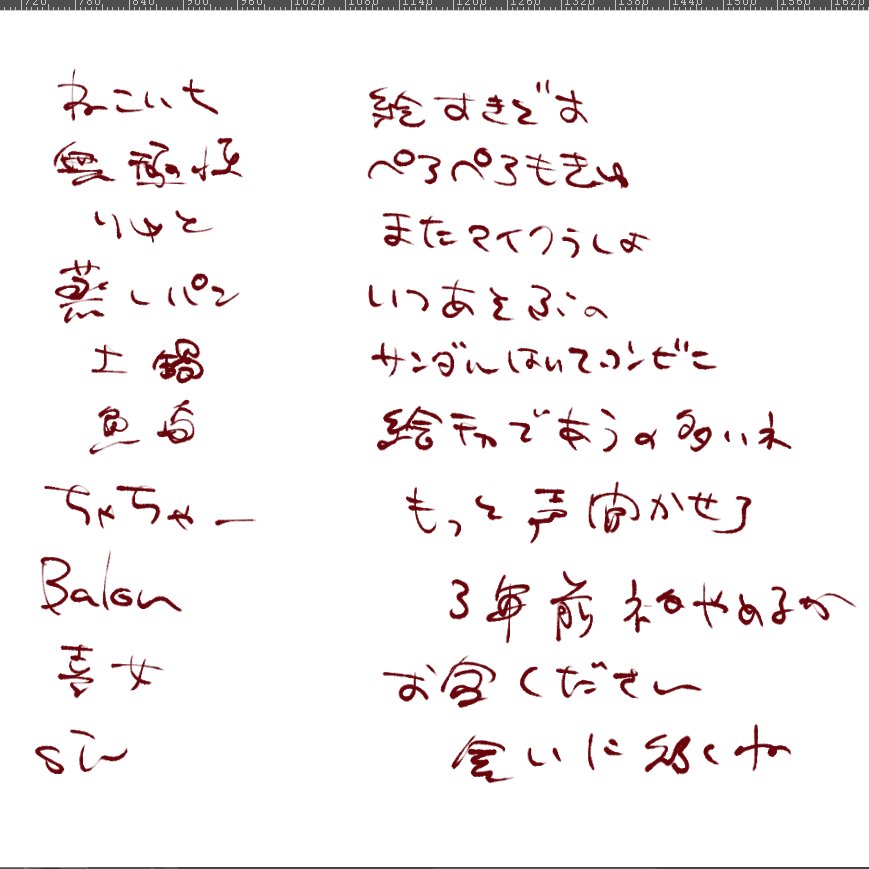 720 780 840 900 960 1020 1080 1140 1200 1260 1320 1380 1440 1500 1560 1620
ねこいち 絵すきです
無 極 ぺろぺろもきゅ
りゆと またマイクラしよ
蒸しパン いつあそぶの
土鍋 サンダルはいてコンビニ
魚 絵 であうの多いネ
ちゃちゃー もっと声聞かせろ
Balon 3年前 やめるか
喜女 お金ください
sin 会いに くね